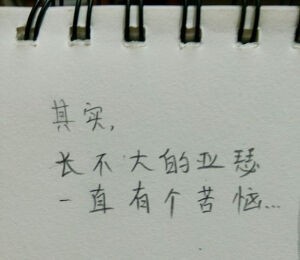 其实,
长不大的亚瑟
一直有个苦恼...